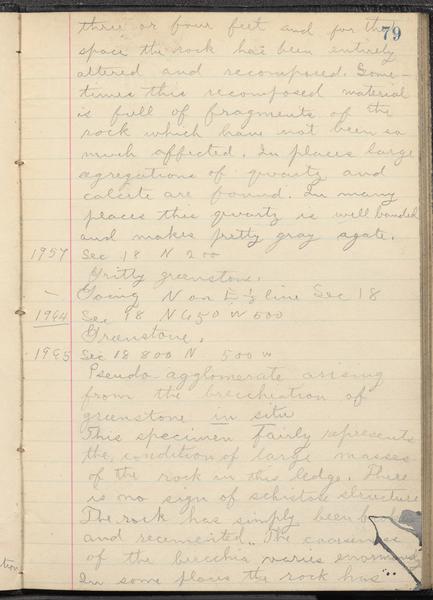 79
three or four feet and for the
space the rock has been entirely
altered and recomposed. Some-
times this recomposed material
is full of fragments of the
rock which have not been so
much affected. In places large
agregations of quartz and
calcite are found. In many
places this quartz is well banded
and makes pretty gray agate.
1957 Sec 18 N 200
Gritty greenstone.
— Going N on E 1/8 line Sec 18
1944 Sec 18 N 650 W 500
Greenstone.
1945 Sec 18 800 N 500 W
Pseudo agglomerate arising
from the brecciation of
greenstone in situ
This specimen fairly represents
the condition of large masses
of the rock in this ledge. There
is no sign of schistose structure
The rock has simply been
and recemented. The coarseness
of the breccia varies
In some places the rock has
tion